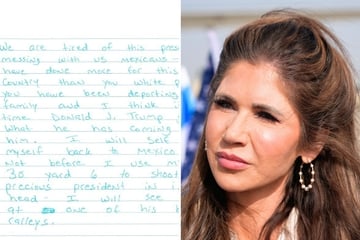 We are tired of this pres
messing with us mexicans -
have done more for this
Country than you white p
you have been deporting
family and I think i
time Donald J. Trump i
What he has coming
him. I will self
myself back to Mexico
Not before I use m
30 yard 6 to shoot
precious president in i
head - I will see
at one of his
ralleys.